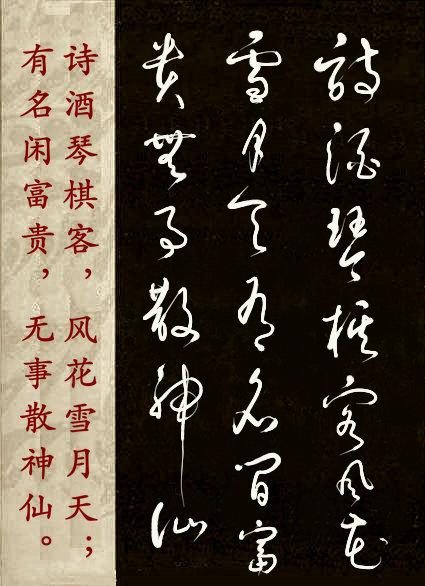 詩酒琴棋客風花
雪月天有名閒富
貴無事散神仙
诗酒琴棋客，风花雪月天；
有名闲富贵，无事散神仙。